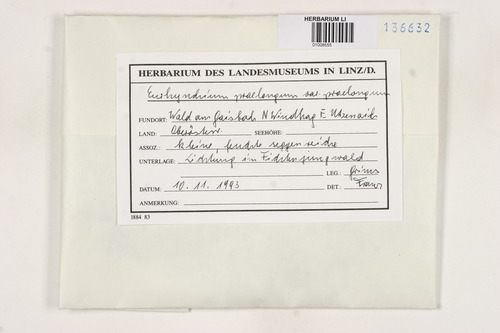 HERBARIUM LI
01008555
136632
HERBARIUM DES LANDESMUSEUMS IN LINZ/D.
Eurhynchium praelongum var. praelongum
FUNDORT: Wald am Gaisbach N Windhag E
LAND: Oberösterr. SEEHÖHE:
ASSOZ.: kleine, feuchte seggenreiche
UNTERLAGE: Lichtung im Fichtenjungwald
LEG.: Grims
DATUM: 10.11.1993 DET.: Franz
ANMERKUNG:
1884 83